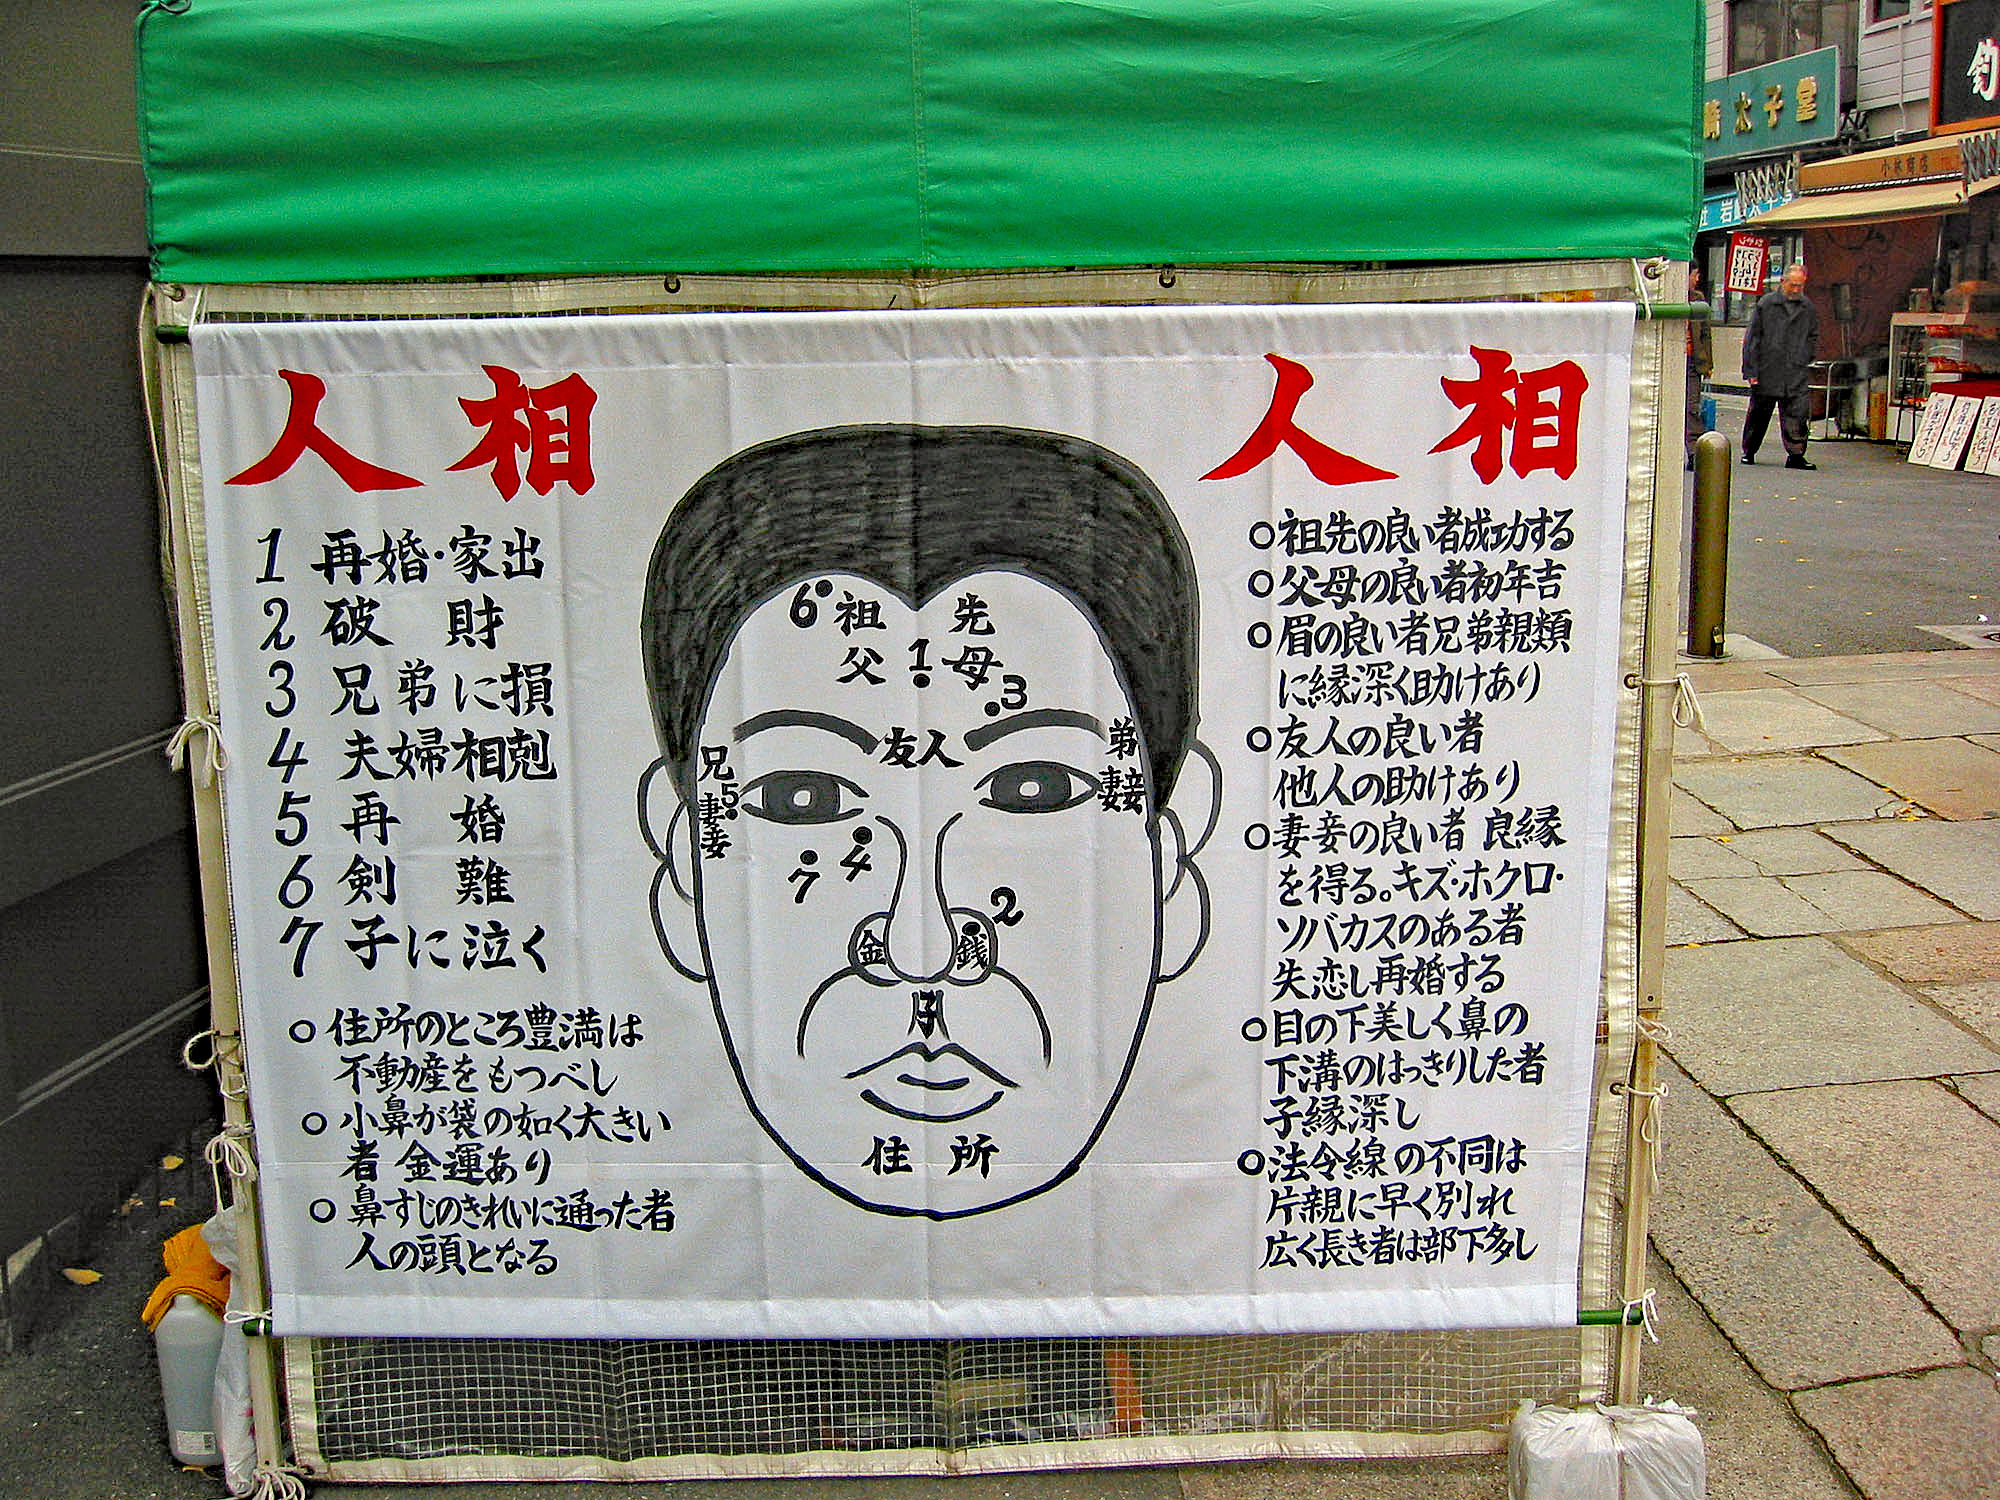 人相
人相
1 再婚・家出
2 破財
3 兄弟に損
4 夫婦相剋
5 再婚
6 剣難
7 子に泣く
○住所のところ豊満は
不動産をもつべし
○小鼻が袋の如く大きい
者 金運あり
○鼻すじのきれいに通った者
人の頭となる
6 祖 先
父 1 母
3
友人
兄 弟
5
妻妾 妻妾
4
7
2
金 銭
子
住所
○祖先の良い者成功する
○父母の良い者初年吉
○眉の良い者兄弟親類
に縁深く助けあり
○友人の良い者
他人の助けあり
○妻妾の良い者 良縁
を得る。キズ・ホクロ・
ソバカスのある者
失恋し再婚する
○目の下美しく鼻の
下溝のはっきりした者
子縁深し
○法令線の不同は
片親に早く別れ
広く長き者は部下多し
太子堂
小林商店
釣